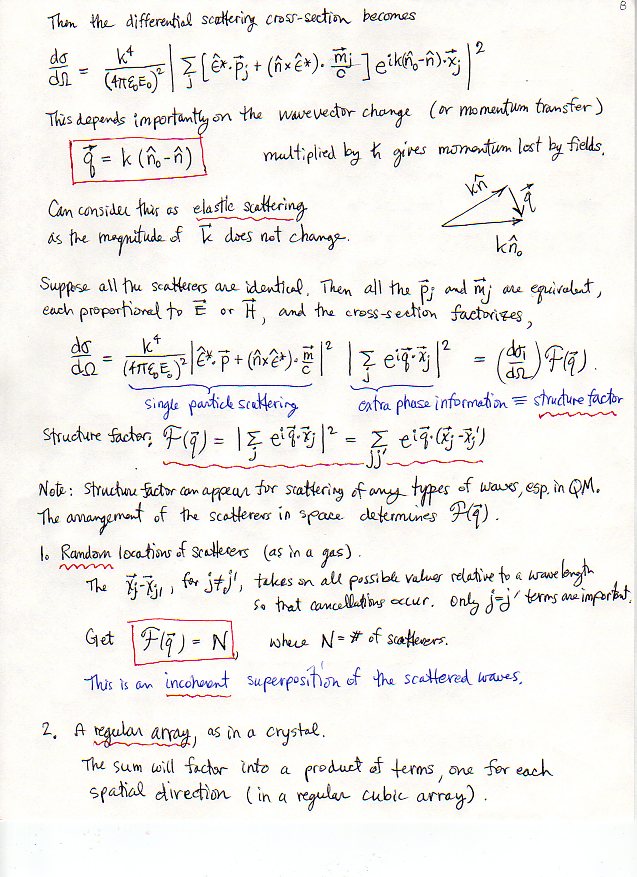 8
Then the differential scattering cross-section becomes
dσ/dΩ = k⁴/(4πε₀E₀)² | Σ_j [ ε̂*·p⃗_j + (n̂×ε̂*)· m⃗_j/c ] e^{ik(n̂₀-n̂)·x⃗_j} |²
This depends importantly on the wavevector change (or momentum transfer)
q⃗ = k (n̂₀-n̂) multiplied by ħ gives momentum lost by fields.
kn̂ q⃗
Can consider this as elastic scattering
as the magnitude of k⃗ does not change.
kn̂₀
Suppose all the scatterers are identical. Then all the p⃗_j and m⃗_j are equivalent,
each proportional to E⃗ or H⃗, and the cross-section factorizes,
dσ/dΩ = k⁴/(4πε₀E₀)² | ε̂*·p⃗ + (n̂×ε̂*)· m⃗/c |² | Σ_j e^{iq⃗·x⃗_j} |² = (dσ₁/dΩ) F(q⃗).
single particle scattering extra phase information ≡ structure factor
Structure factor: F(q⃗) = | Σ_j e^{iq⃗·x⃗_j} |² = Σ_{jj'} e^{iq⃗·(x⃗_j-x⃗_j')}
Note: Structure factor can appear for scattering of any types of waves, esp. in QM.
The arrangement of the scatterers in space determines F(q⃗).
1. Random locations of scatterers (as in a gas).
The x⃗_j-x⃗_j', for j≠j', takes on all possible values relative to a wavelength
so that cancellations occur. Only j=j' terms are important.
Get F(q⃗) = N, where N = # of scatterers.
This is an incoherent superposition of the scattered waves.
2. A regular array, as in a crystal.
The sum will factor into a product of terms, one for each
spatial direction (in a regular cubic array).